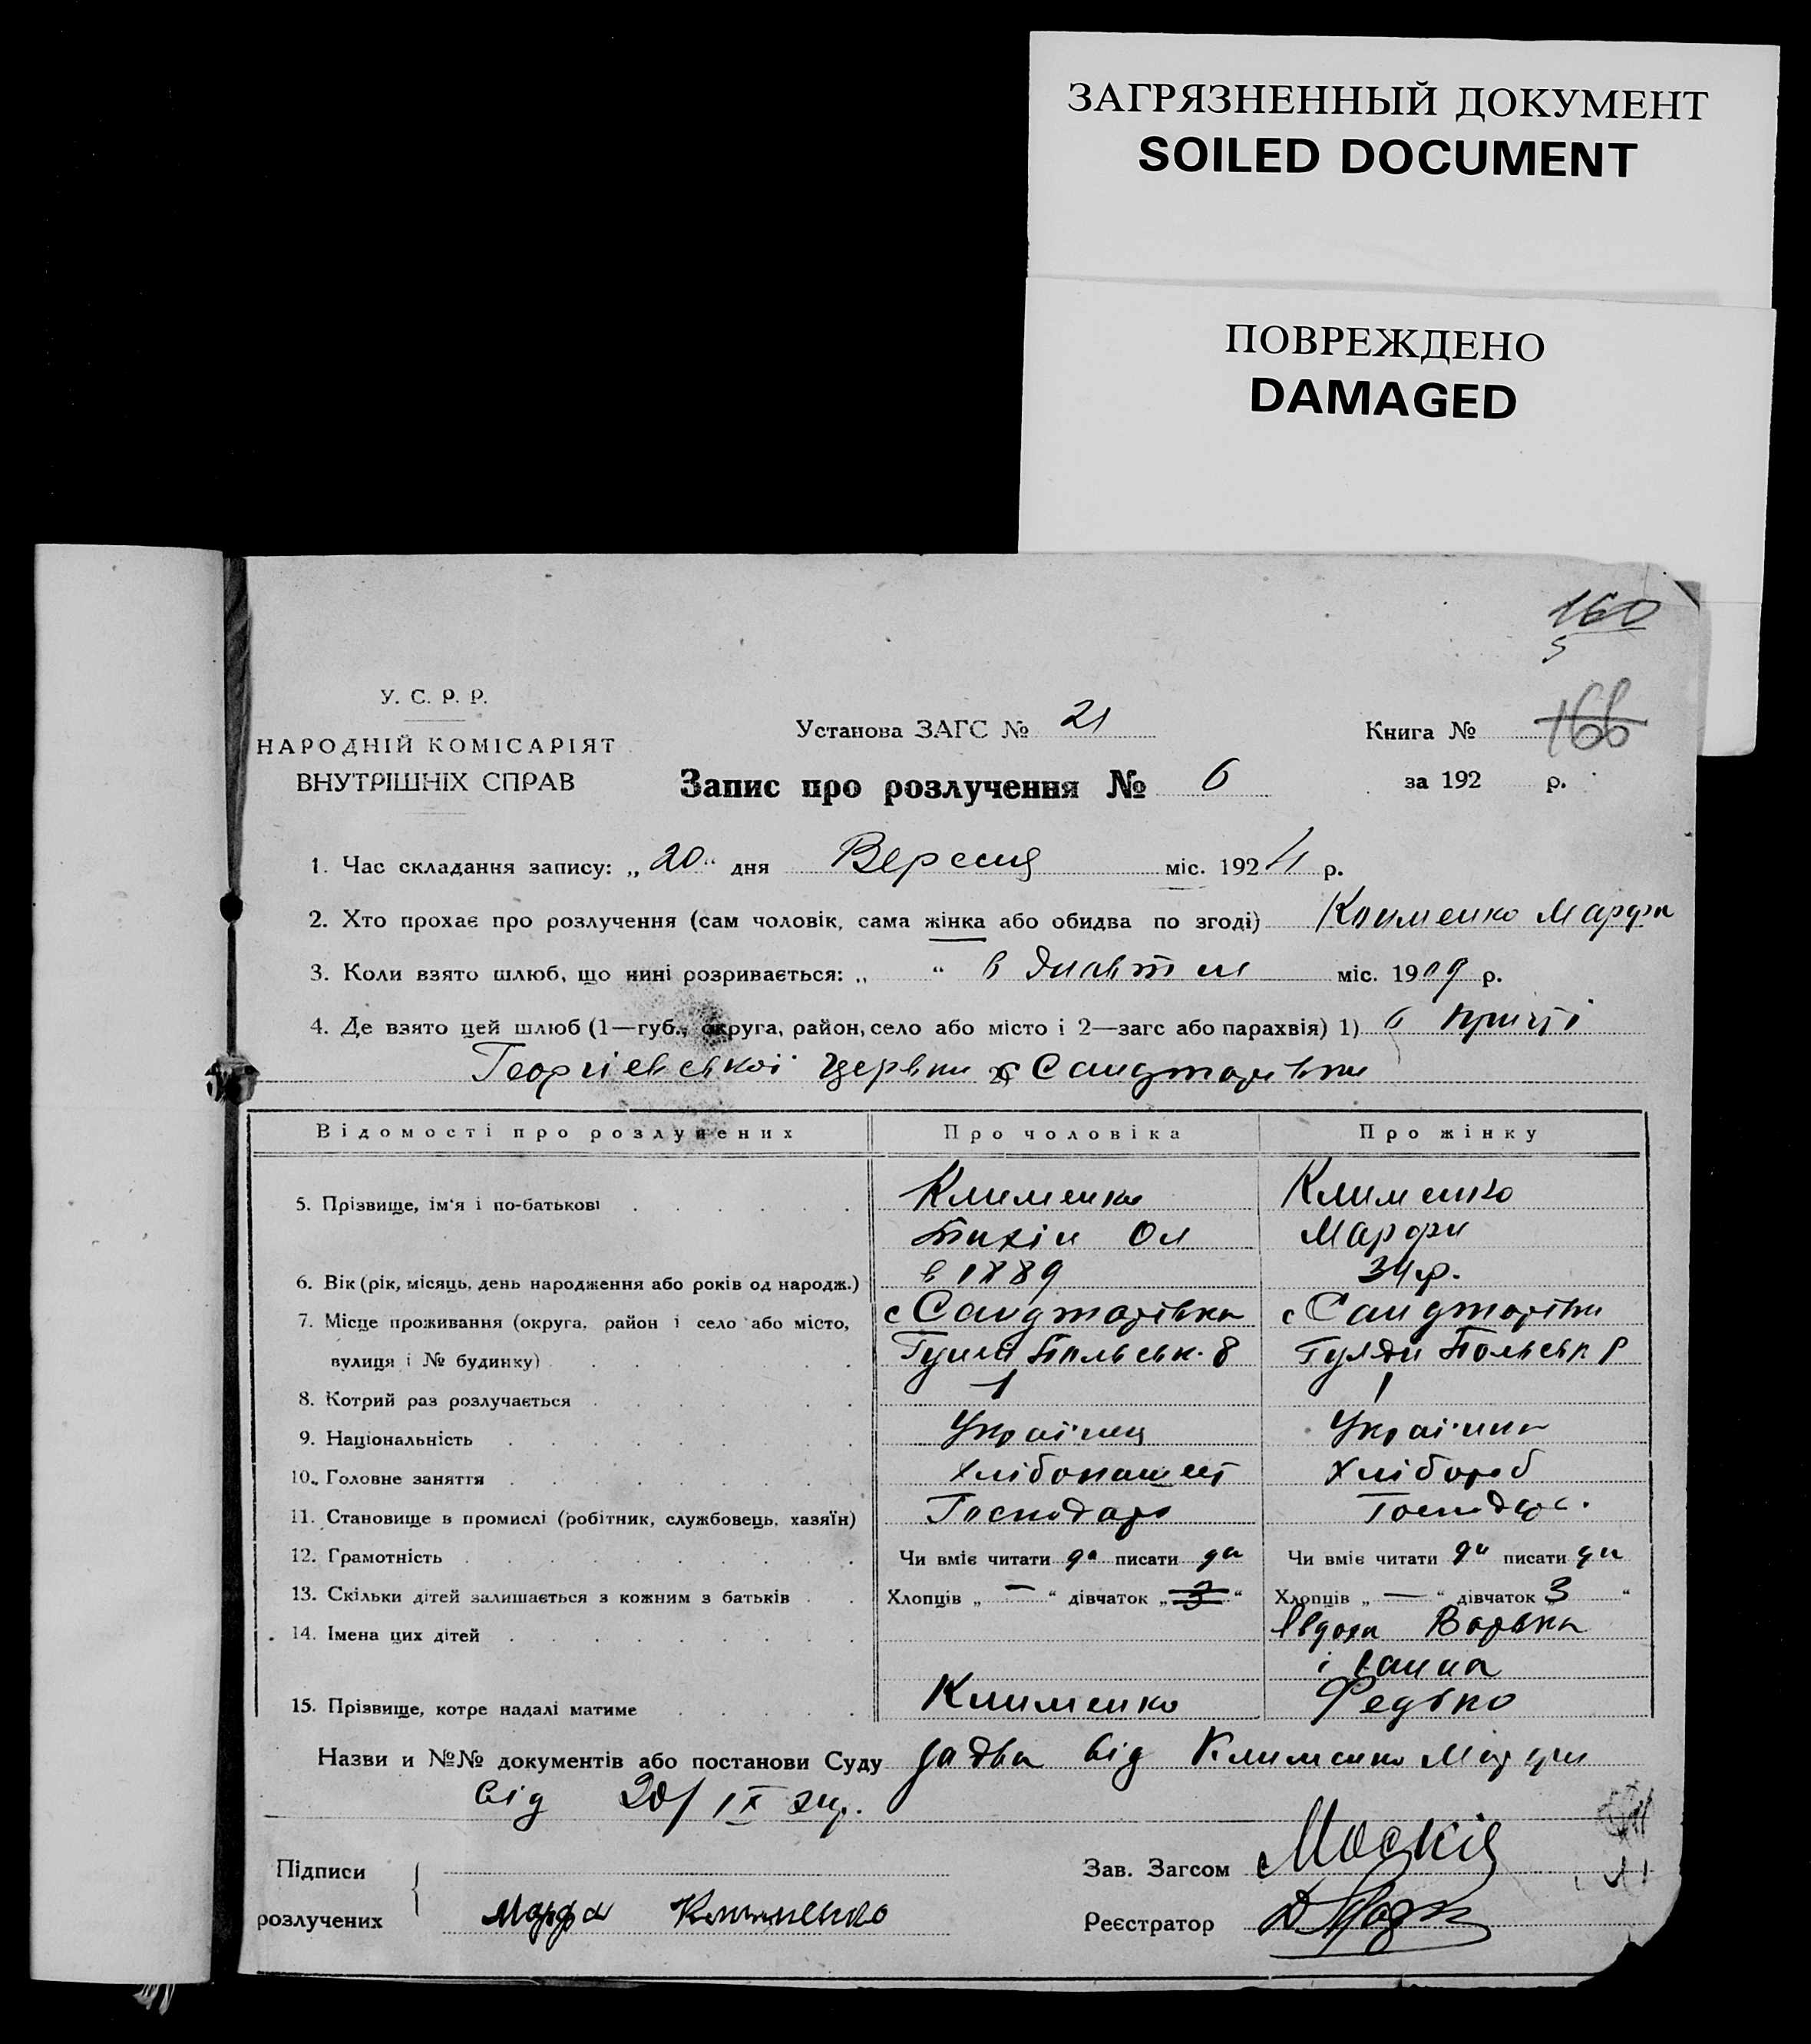 ЗАГРЯЗНЕННЫЙ ДОКУМЕНТ
SOILED DOCUMENT
ПОВРЕЖДЕНО
DAMAGED
160
5
У. С. Р. Р.
НАРОДНІЙ КОМІСАРІЯТ
ВНУТРІШНІХ СПРАВ
Установа ЗАГС № 21
Книга № 166
Запис про розлучення № 6
за 192 р.
1. Час складання запису: „20“ дня Вересня міс. 1924 р.
2. Хто прохає про розлучення (сам чоловік, сама жінка або обидва по згоді) Клименко Марфа
3. Коли взято шлюб, що нині розривається: „ “ в міс. 1909 р.
4. Де взято цей шлюб (1—губ., округа, район, село або місто і 2—загс або парахвія) 1) в причті
Георгіевськоі церкви 2) с Санджарівки
Відомості про розлучених Про чоловіка Про жінку
5. Прізвище, ім'я і по-батькові Клименко Клименко
Тихін Ол Марфи
6. Вік (рік, місяць, день народження або років од народж.) в 1889 34 р.
7. Місце проживання (округа, район і село або місто, с Санджарівка с Санджарівки
вулиця і № будинку) Гуляй Польськ. Гуляй Польськ р
8. Котрий раз розлучається 1 1
9. Національність Украінец Украінка
10. Головне заняття Хлібопашест Хлібороб
11. Становище в промислі (робітник, службовець, хазяїн) Господарь Господар.
12. Грамотність Чи вміє читати да писати да Чи вміє читати да писати да
13. Скільки дітей залишається з кожним з батьків Хлопців „ — “ дівчаток „ 3 “ Хлопців „ — “ дівчаток 3 “
14. Імена цих дітей Явдоха Варька
і Ганна
15. Прізвище, котре надалі матиме Клименко Федько
Назви и №№ документів або постанови Суду заява від Клименко Марфи
від 20/IX 24 р.
Підписи
розлучених
Марфа Клименко
Зав. Загсом
Реєстратор